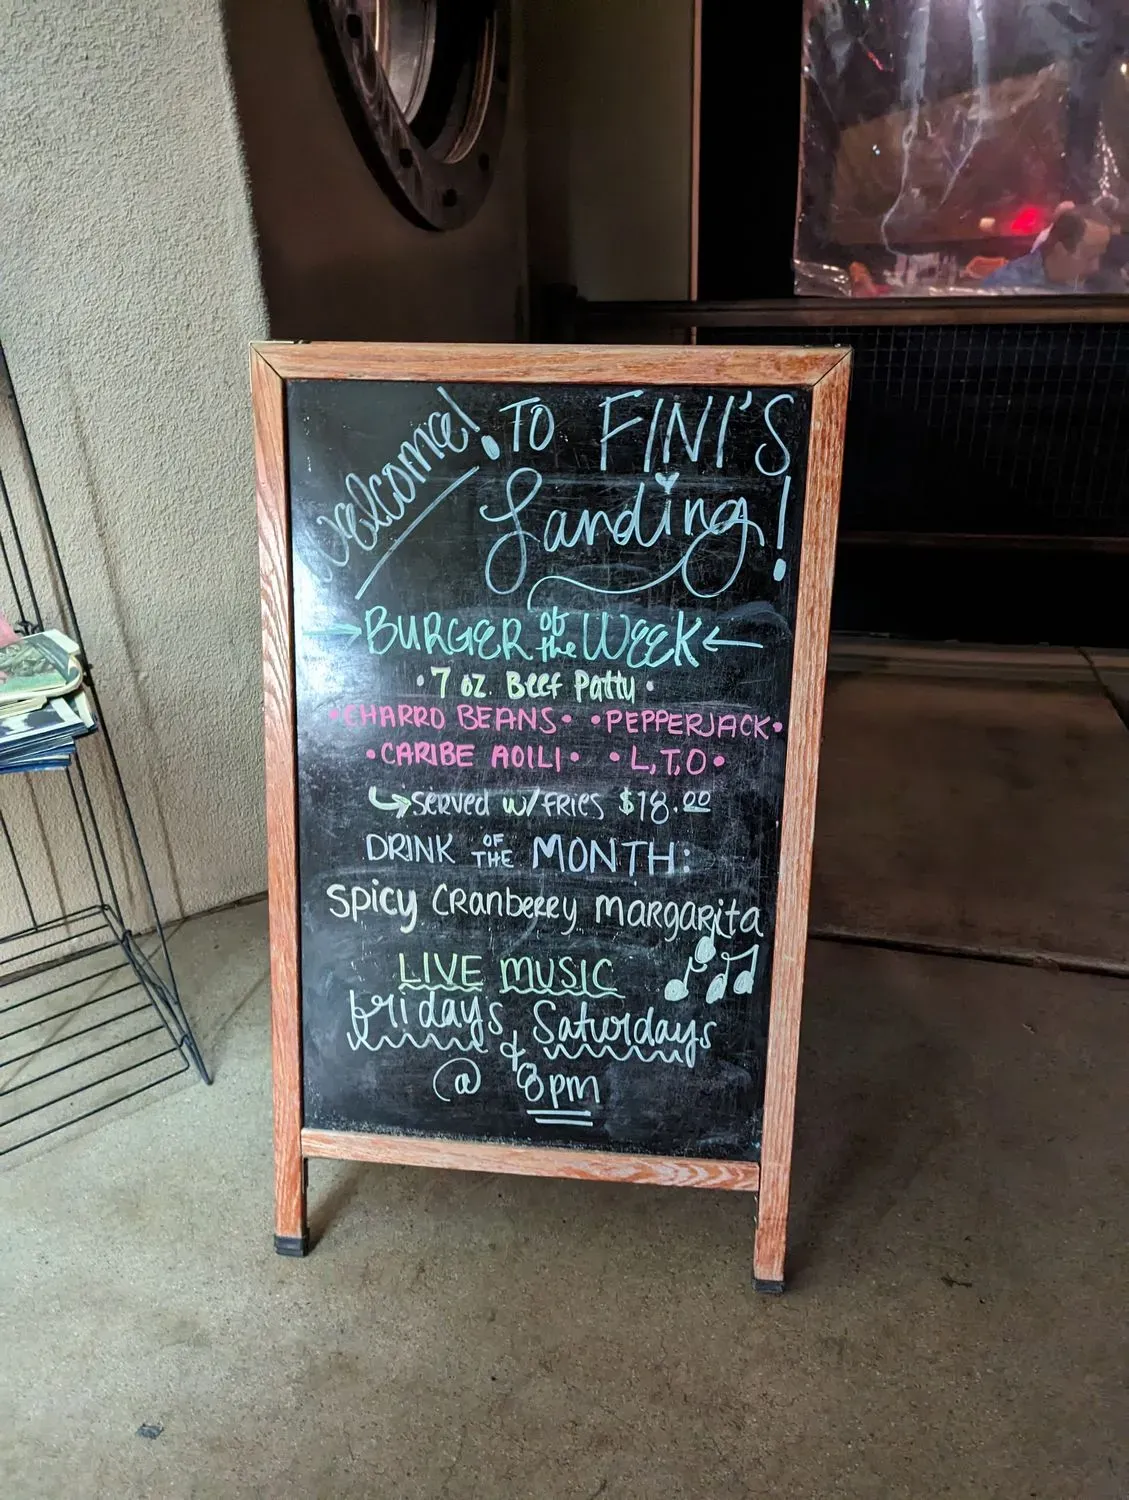 Welcome! TO FINI'S
Landing!
→BURGER of the WEEK←
• 7 oz. Beef Patty •
• CHARRO BEANS • • PEPPERJACK •
• CARIBE AOILI • • L,T,O •
↳ served w/ FRIES $18.00
DRINK OF THE MONTH:
Spicy Cranberry margarita
LIVE MUSIC
fridays & Saturdays
@ 8pm